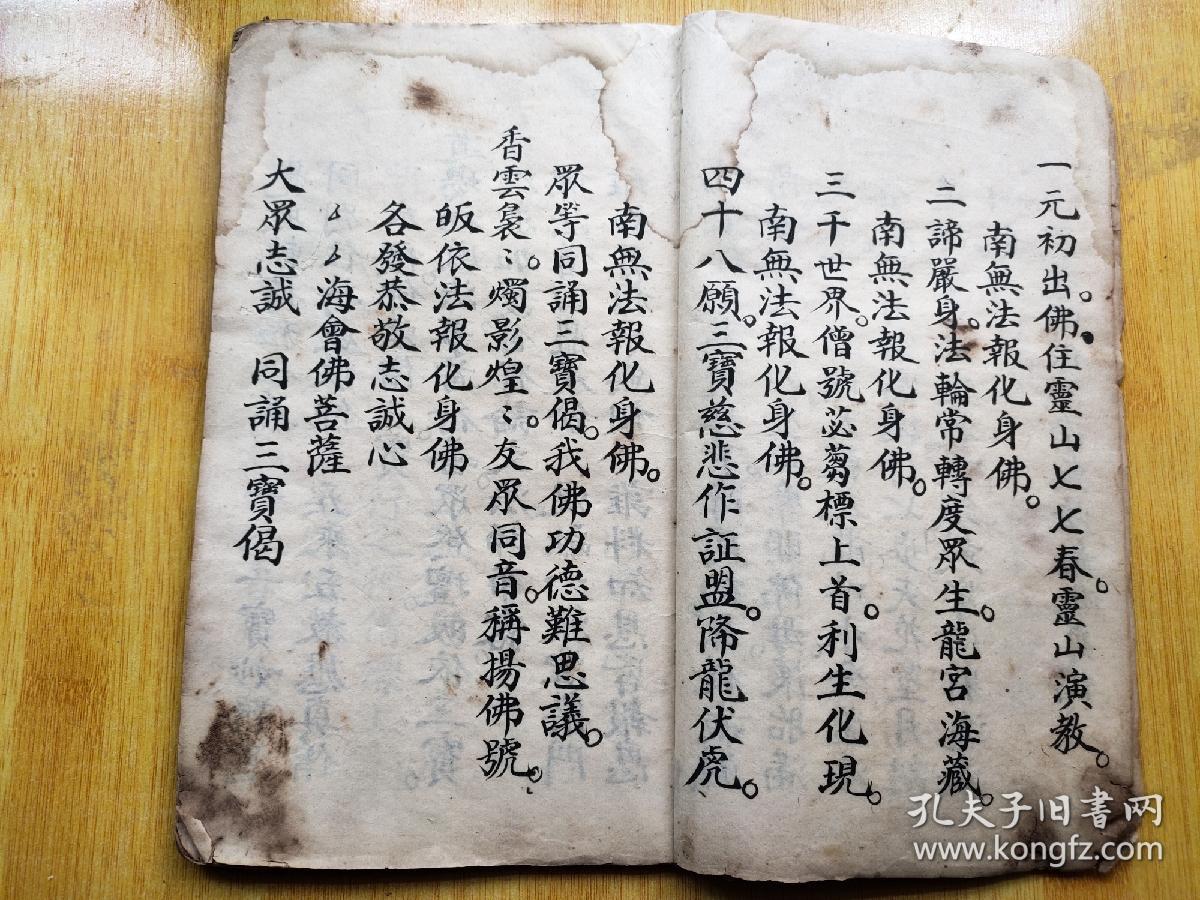 一元初出。佛住靈山七七春。靈山演教。
南無法報化身佛。
二諦嚴身。法輪常轉度眾生。龍宮海藏。
南無法報化身佛。
三千世界。僧號苾蒭標上首。利生化現。
南無法報化身佛。
四十八願。三寶慈悲作証盟。降龍伏虎。
南無法報化身佛。
眾等同誦三寶偈。我佛功德難思議。
香雲裊〻。燭影煌〻。友眾同音。稱揚佛號。
皈依法報化身佛
各發恭敬志誠心
〻〻海會佛菩薩
大眾志誠 同誦三寶偈
孔夫子旧书网
www.kongfz.com